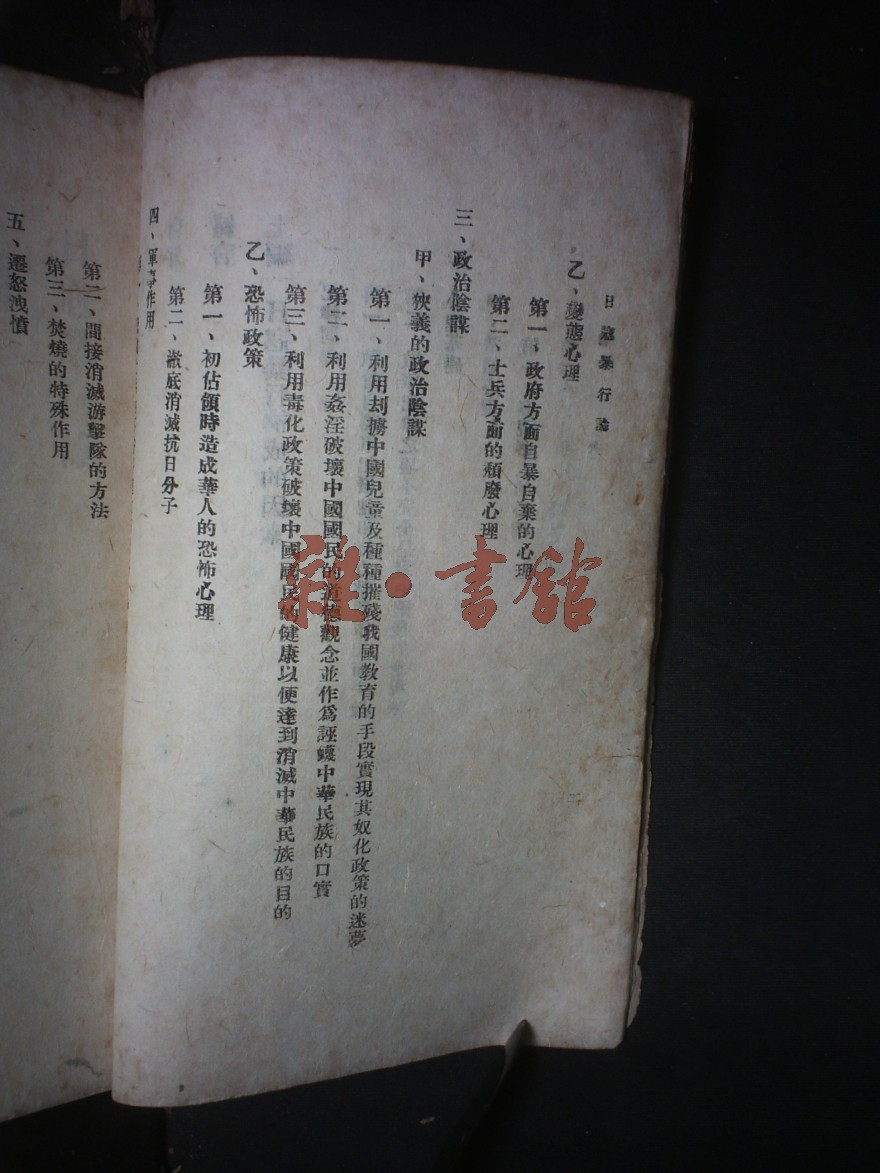 日寇暴行論
二
乙、變態心理
第一、政府方面自暴自棄的心理
第二、士兵方面的頹廢心理
三、政治陰謀
甲、狹義的政治陰謀
第一、利用刦擄中國兒童及種種摧殘我國教育的手段實現其奴化政策的迷夢
第二、利用姦淫破壞中國國民的道德觀念並作爲誣衊中華民族的口實
第三、利用毒化政策破壞中國國民的健康以便達到消滅中華民族的目的
乙、恐怖政策
第一、初佔領時造成華人的恐怖心理
第二、澈底消滅抗日分子
四、軍事作用
第二、間接消滅游擊隊的方法
第三、焚燒的特殊作用
五、遷怒洩憤
雜·書館